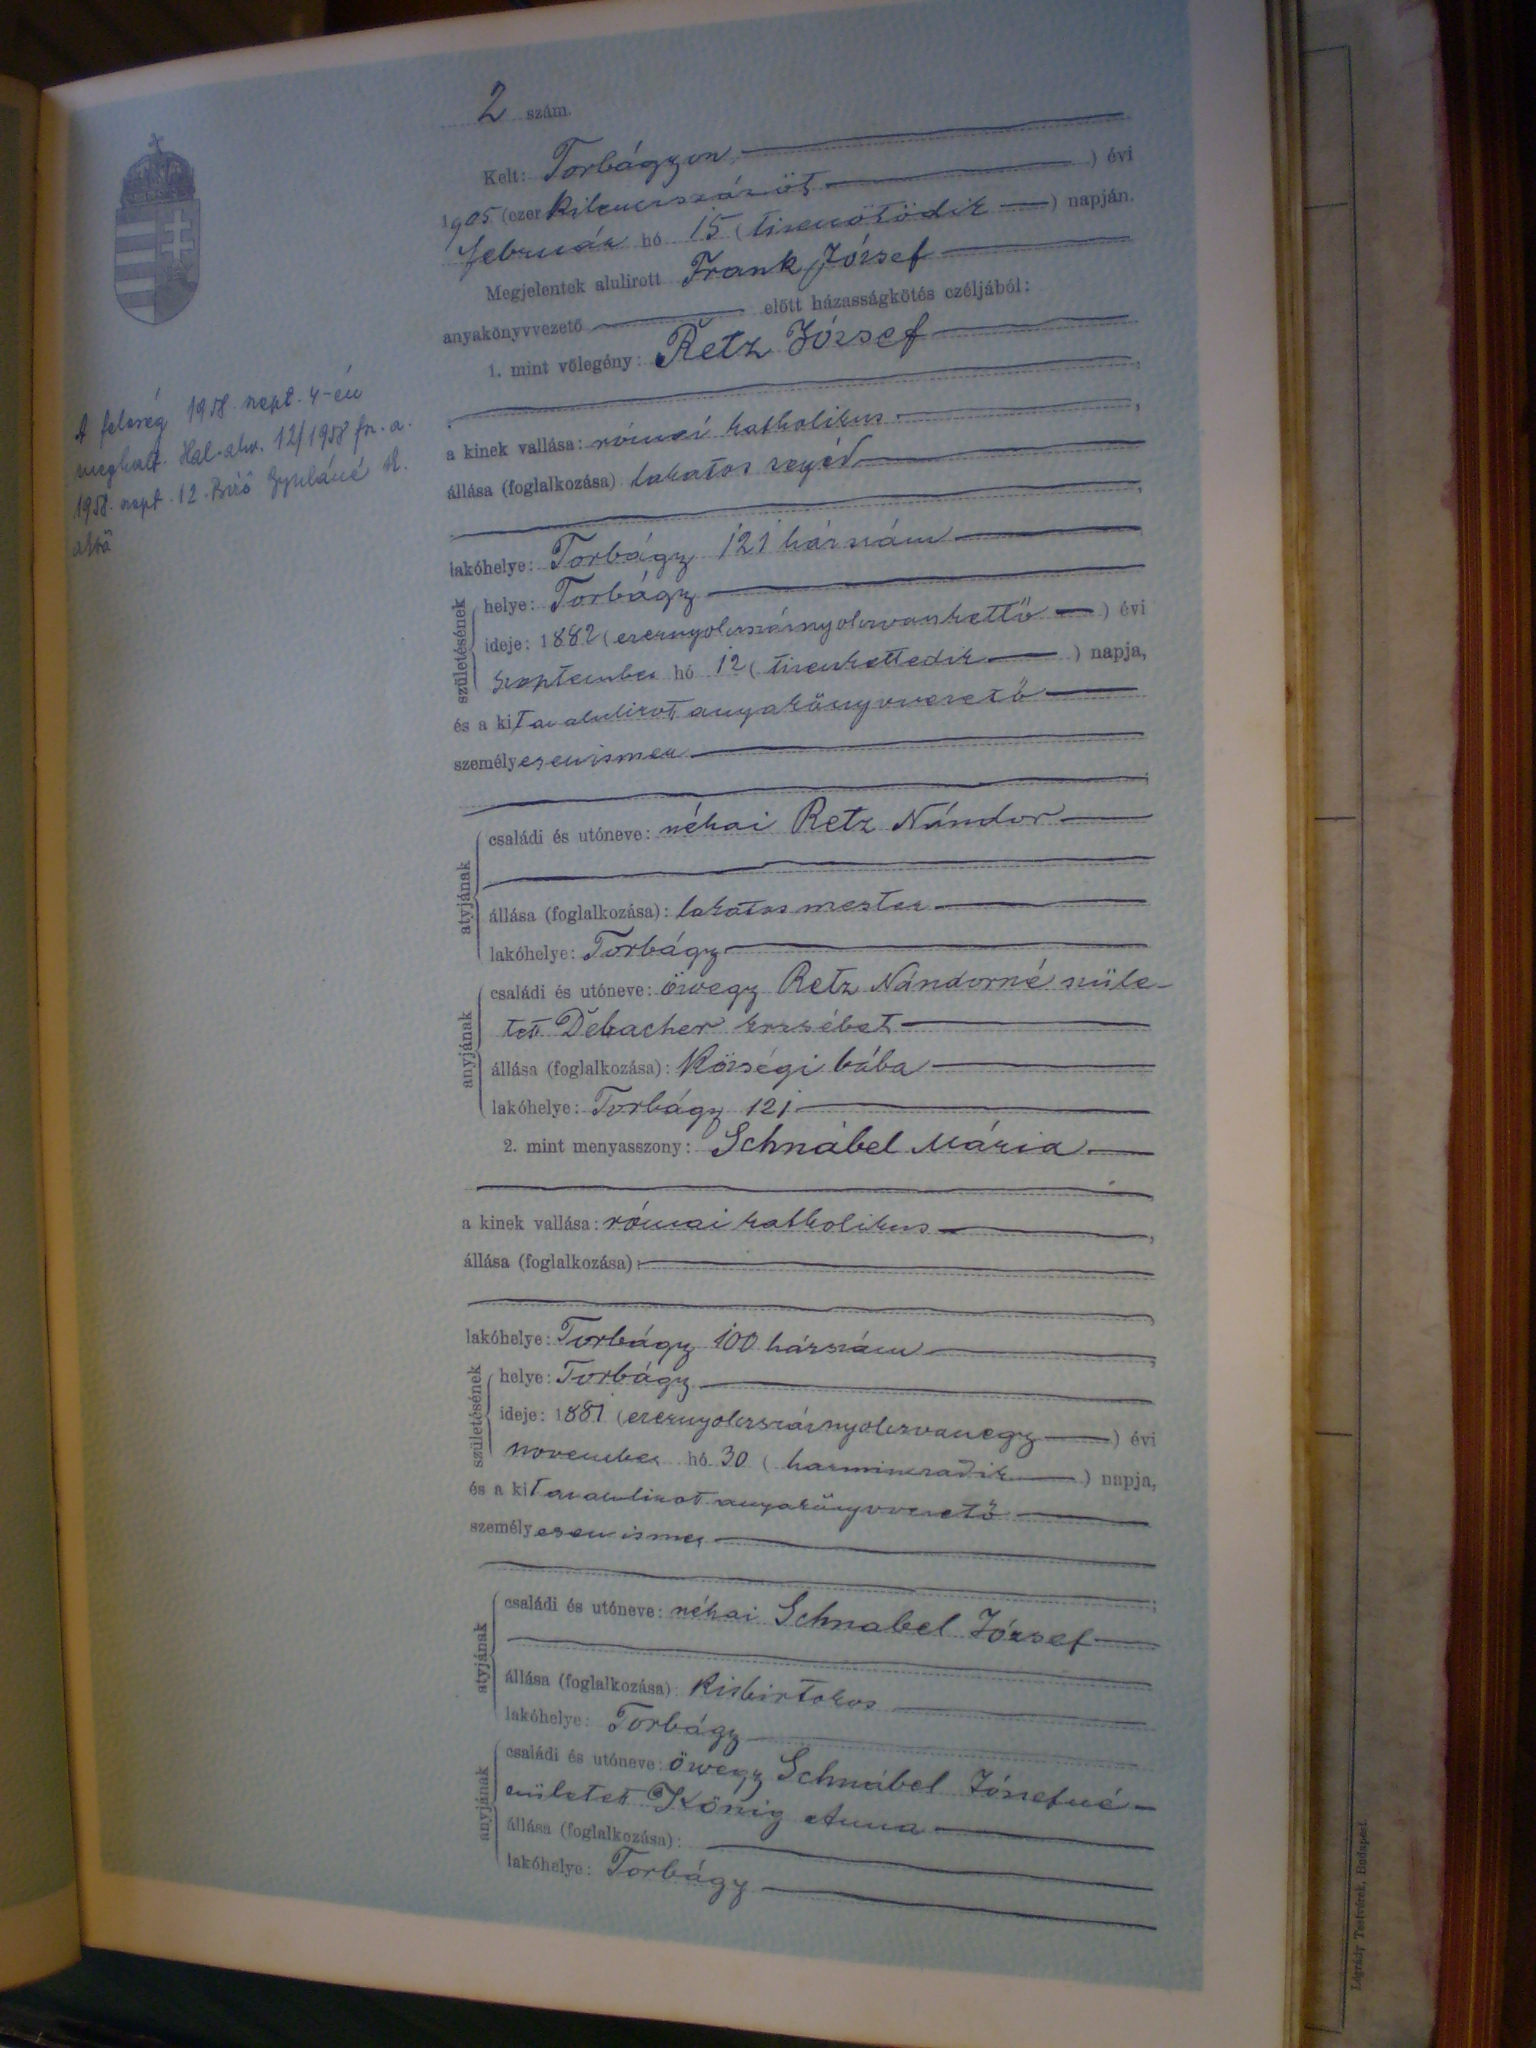 2 szám.
Kelt: Torbágyon,
1905 (ezer kilenczszázöt) évi
február hó 15 (tizenötödik) napján.
Megjelentek alulirott Frank József
anyakönyvvezető előtt házasságkötés czéljából:
1. mint vőlegény: Retz József
a kinek vallása: római katholikus,
állása (foglalkozása) lakatos segéd,
lakóhelye: Torbágy 121 házszám
születésének
helye: Torbágy
ideje: 1882 (ezernyolczszáznyolczvankettő) évi
szeptember hó 12 (tizenkettedik) napja,
és a kit az alulirot anyakönyvvezető
személyesen ismer
atyjának
családi és utóneve: néhai Retz Nándor
állása (foglalkozása): lakatos mester
lakóhelye: Torbágy
anyjának
családi és utóneve: özvegy Retz Nándorné szüle-
tett Debacher Erzsébet
állása (foglalkozása): Községi bába
lakóhelye: Torbágy 121
2. mint menyasszony: Schnábel Mária
a kinek vallása: római katholikus,
állása (foglalkozása):
lakóhelye: Torbágy 100 házszám
születésének
helye: Torbágy
ideje: 1881 (ezernyolczszáznyolczvanegy) évi
november hó 30 (harminczadik) napja,
és a kit az alulirot anyakönyvvezető
személyesen ismer
atyjának
családi és utóneve: néhai Schnabel József
állása (foglalkozása) Kisbirtokos
lakóhelye: Torbágy
anyjának
családi és utóneve: özvegy Schnábel Józsefné
született König Anna
állása (foglalkozása):
lakóhelye: Torbágy
A feleség 1958 szept. 4-én
meghalt. Hal. akv. 12/1958 fsz. a.
1958. szept. 12. Biró Gyuláné
Légrády Testvérek, Budapest.